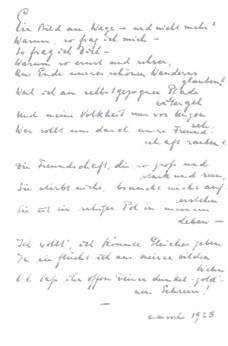 Ein Bild am Wege – und nicht mehr?
Warum, so frag ich mich –
So frag ich Dich –
Warum so ernst und schwer,
Am Ende unserer schönen Wanderung
glauben?
Weil ich am selbstgezogenen Ende
Und meine Volkheit nur vor Augen
seh.
Wer sollt uns darob unsre Freund-
schaft rauben?
Die Freundschaft, die so groß und
stark und rein,
Sie stirbt nicht, braucht nicht auf-
erstehen.
Sie ist ein ruhiger Pol in meinem
Leben –
Ich wollt', ich könnte Gleiches geben
Ja ein flücht ich aus meine wilden
ihn offen Deiner dunkel-gold-
nen Sehnen!
1925